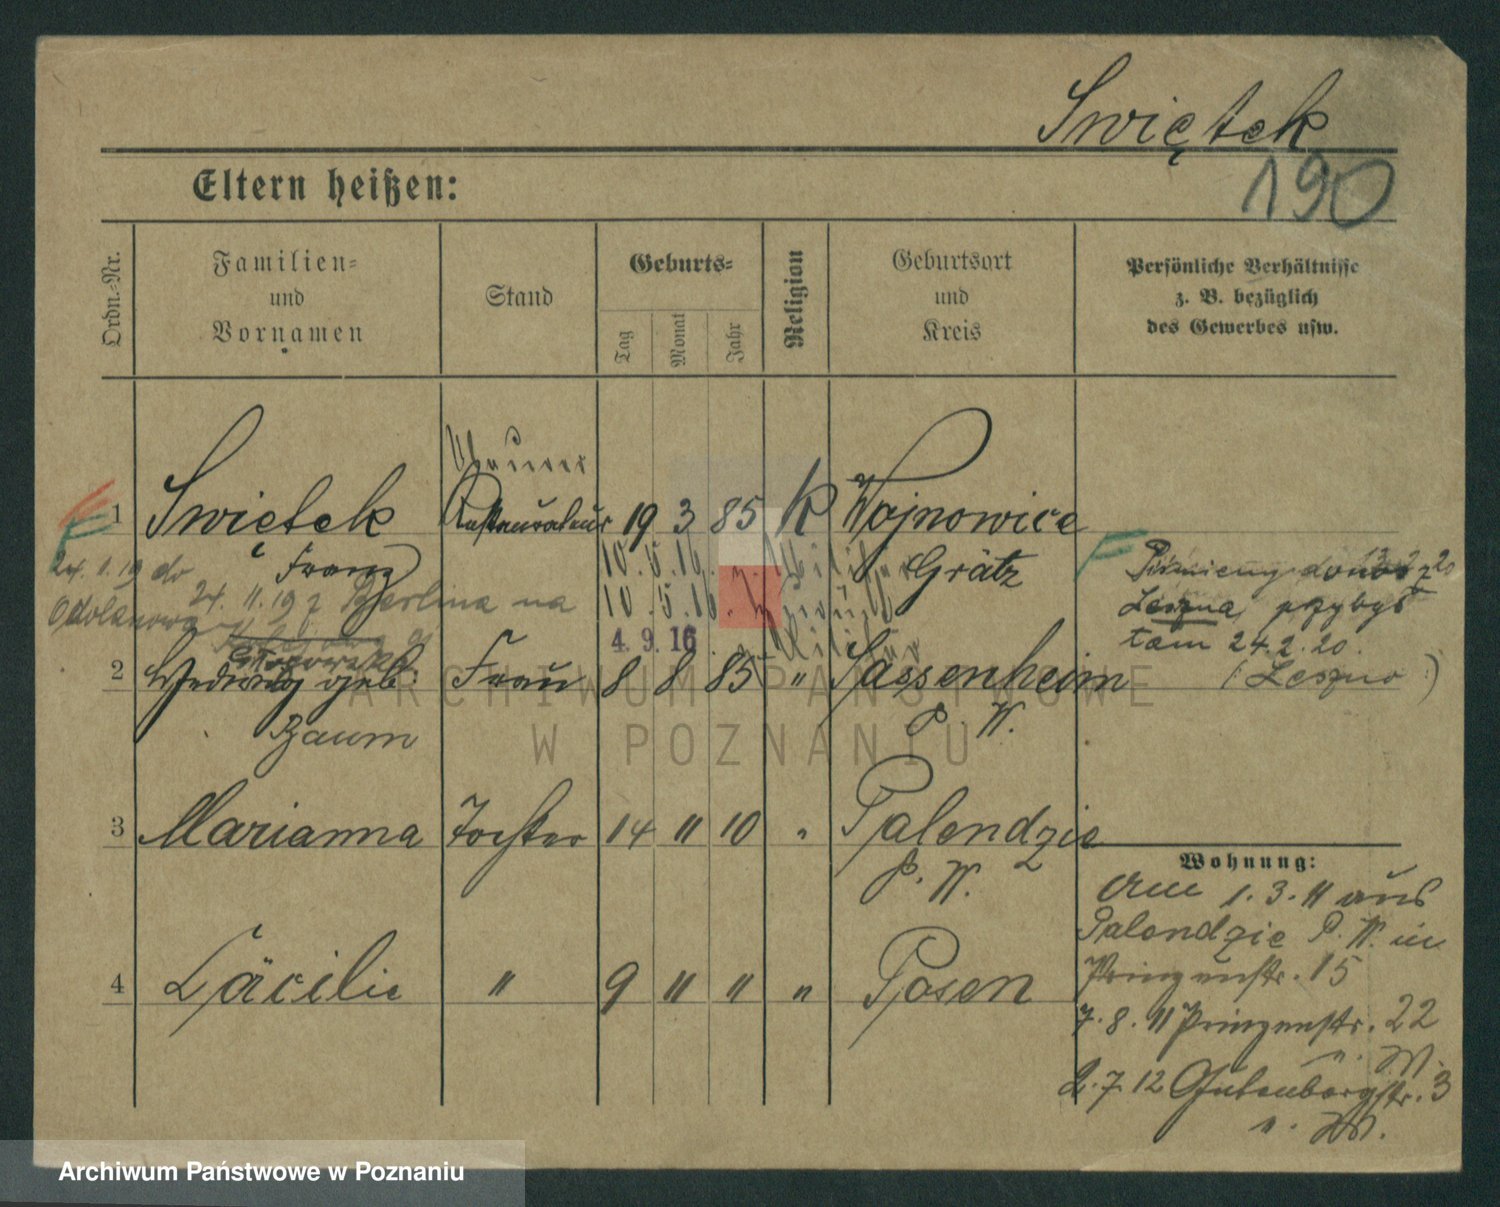 Swiętek
190
Eltern heißen:
Ordn.-Nr.
Familien- und Vornamen
Stand
Geburts-
Tag
Monat
Jahr
Religion
Geburtsort und Kreis
Persönliche Verhältnisse z. B. bezüglich des Gewerbes usw.
1 Swiętek Restaurateur 19 3 85 K Wojnowice
Franz
Grätz
24. 11. 19 do
24. 11. 19 z Berlina na
10. 5. 16.
10. 5. 16.
4. 9. 16
2 Hedwig geb. Frau 8 8 85 " Sassenheim
Baum
P. W.
20
Leszna, przybył
tam 24.2.20.
(Leszno)
3 Marianna Tochter 14 11 10 " Palendzie
P. W.
4 Cäcilie " 9 11 11 " Posen
Wohnung:
Am 1. 3. 11 aus
Palendzie P. W. in
Prinzenstr. 15
7. 8. 11 Prinzenstr. 22
2. 7. 12 Gutenbergstr. 3
ARCHIWUM PAŃSTWOWE
W POZNANIU
Archiwum Państwowe w Poznaniu